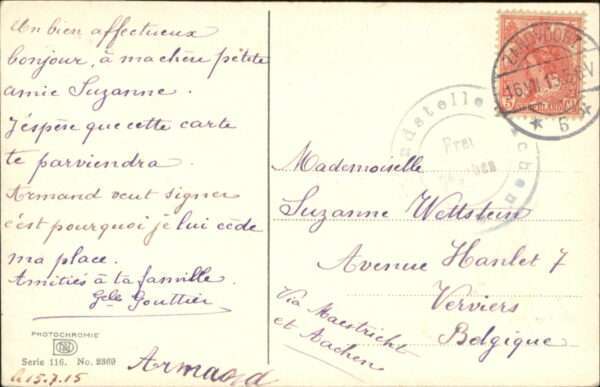 Un bien affectueux
bonjour, à ma chère petite
amie Suzanne.
J'espère que cette carte
te parviendra.
Armand veut signer
c'est pourquoi je lui cède
ma place.
Amitiés à ta famille.
Gelle Gouttier
PHOTOCHROMIE
Serie 116. No. 2369
le 15.7.15
Armand
ZANDVOORT
Frei
Mademoiselle
Suzanne Wettstein
Avenue Hanlet 7
Verviers
Belgique
Via Maestricht
et Aachen